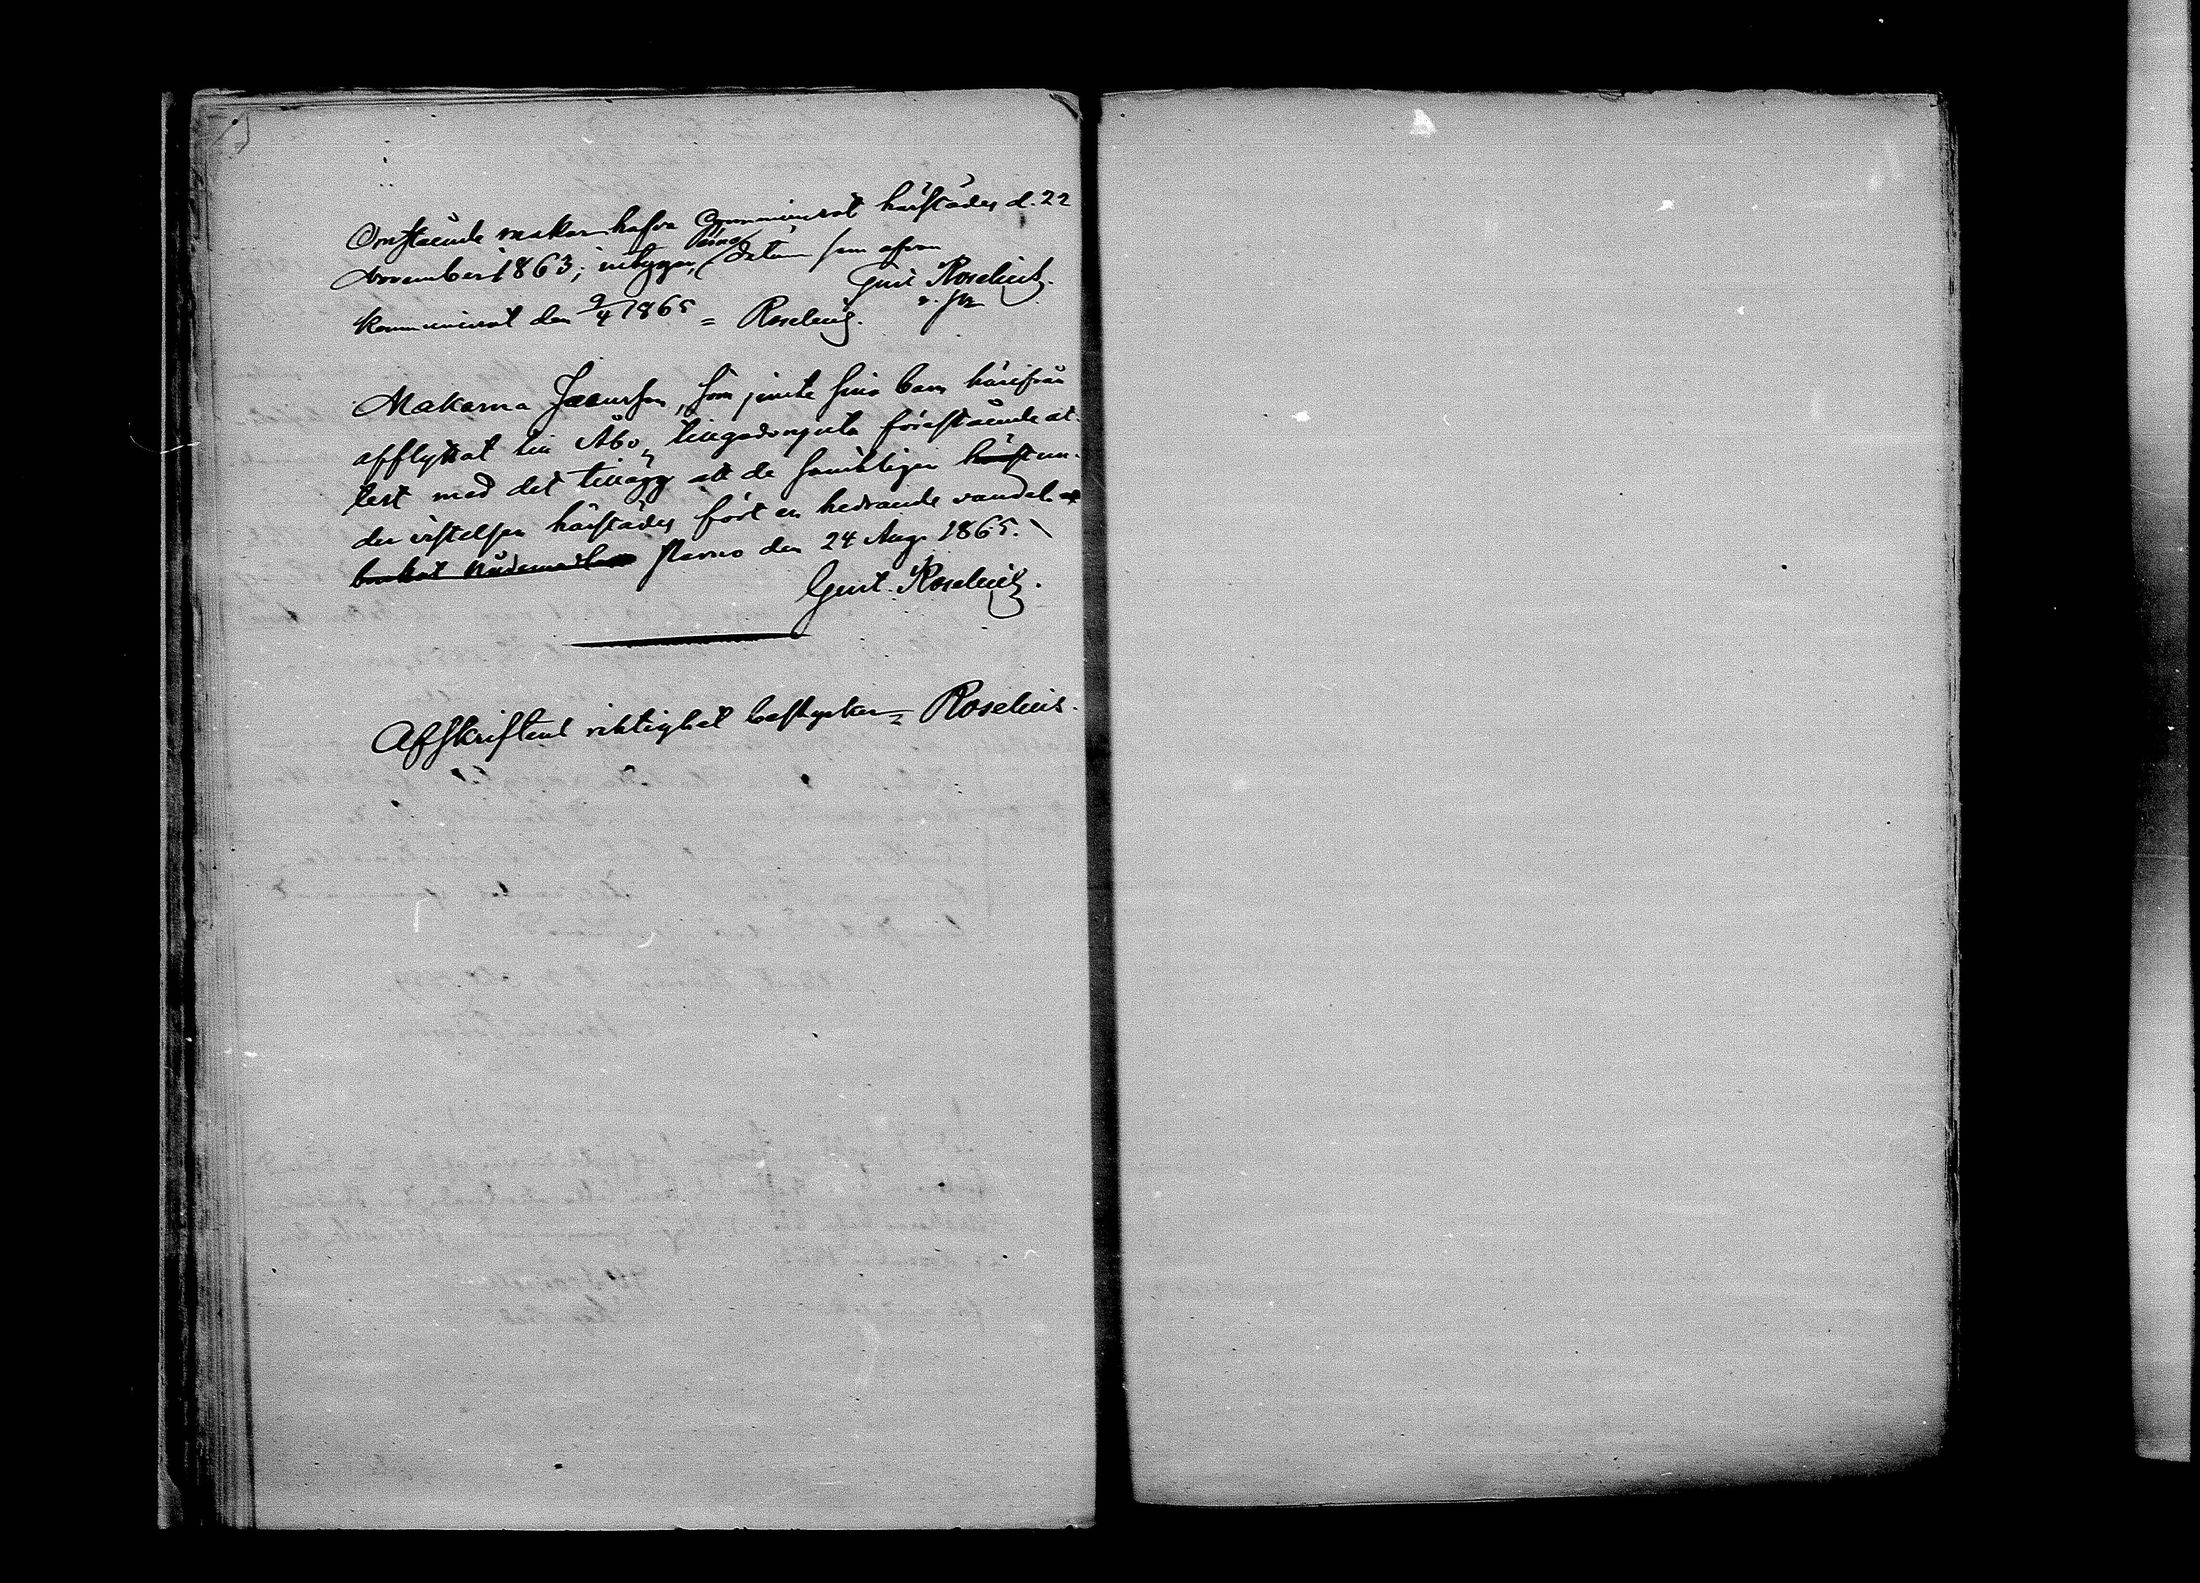 Omstående makar hafva Communicerat härstädes d. 22
November 1863; intygar, Pernå datum som ofvan
Gust Roselius.
v. pr
Kommunicerat den 9/4 1865 = Roselius.
Makarna, som jemte sina barn härifrån
afflyttat till Åbo, förestående at-
test med det tillägg att de samtligen härst un-
der vistelsen härstädes fört en hedrande vandel
brukat Nådemedlen den 24 Aug. 1865.
Gust. Roselius.
Afskriftens riktighet bestyrker = Roselius.